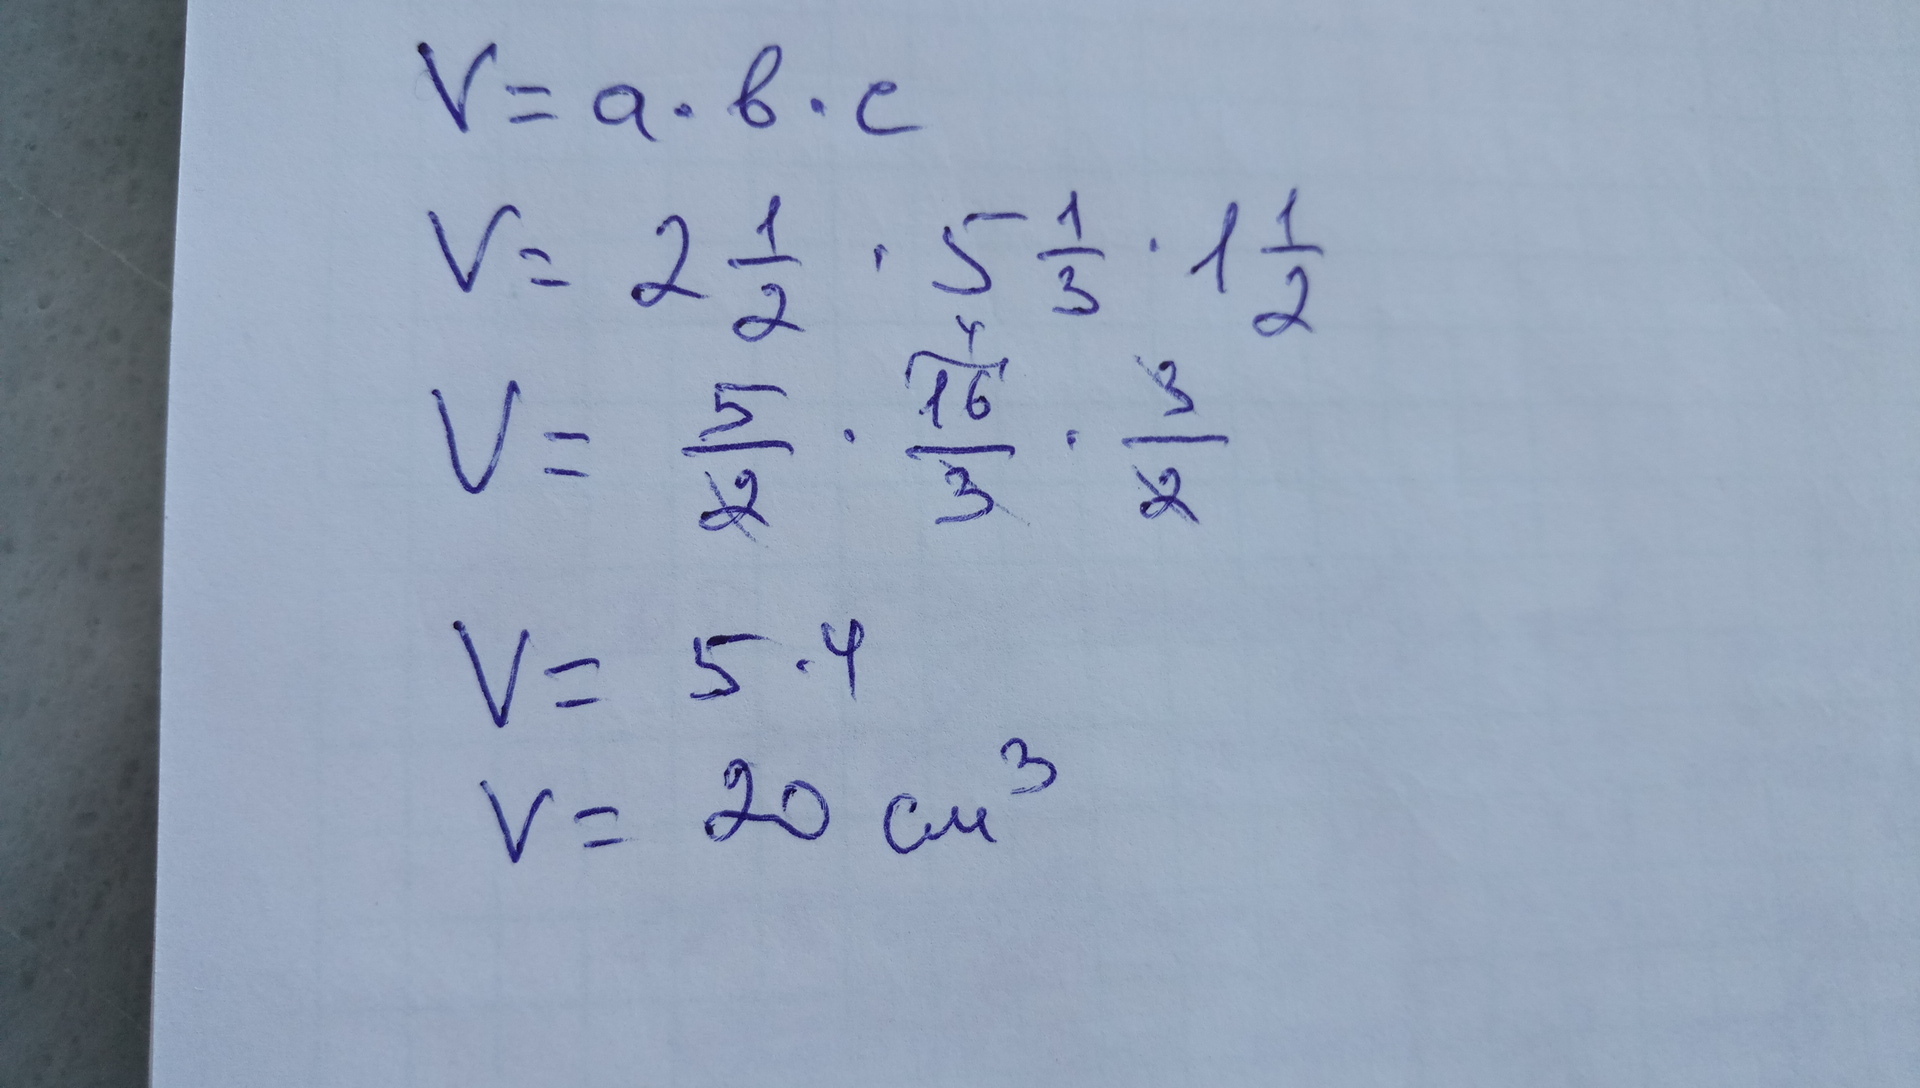 V = a · b · c
V = 2 1/2 · 5 1/3 · 1 1/2
4
V = 5/2 · 16/3 · 3/2
V = 5 · 4
V = 20 см³